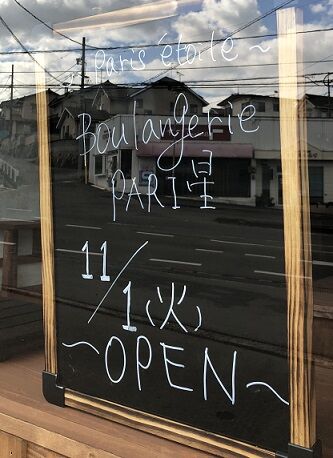 ~ Paris étoile ~
Boulangerie
PARI星
11/1(火)
~OPEN~